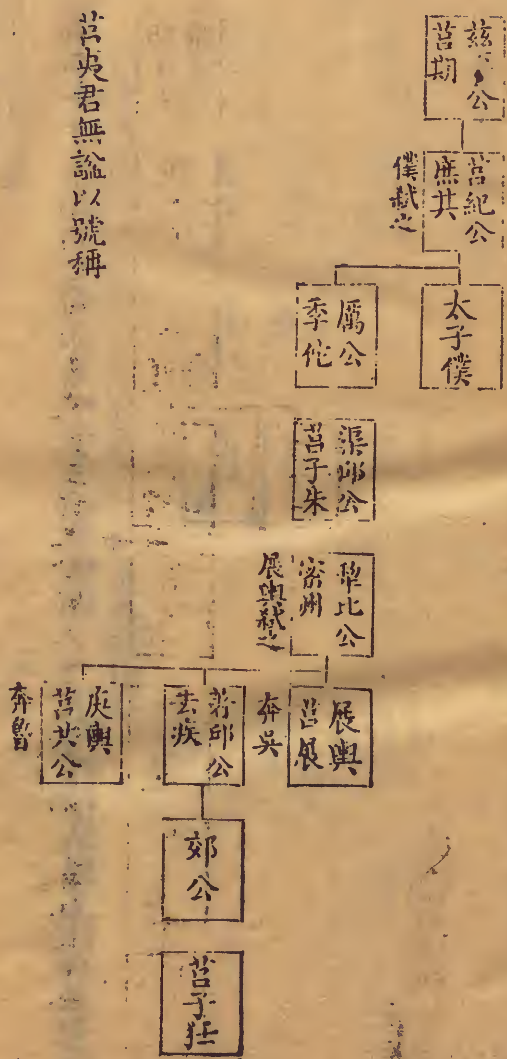 兹公
莒期
莒紀公
庶其
僕弑之
太子僕
厲公
季佗
渠邱公
莒子朱
犂比公
密州
展輿弑之
展輿
莒展
奔吳
著邱公
去疾
庚輿
莒共公
奔魯
郊公
莒子狂
莒夷君無諡以號稱